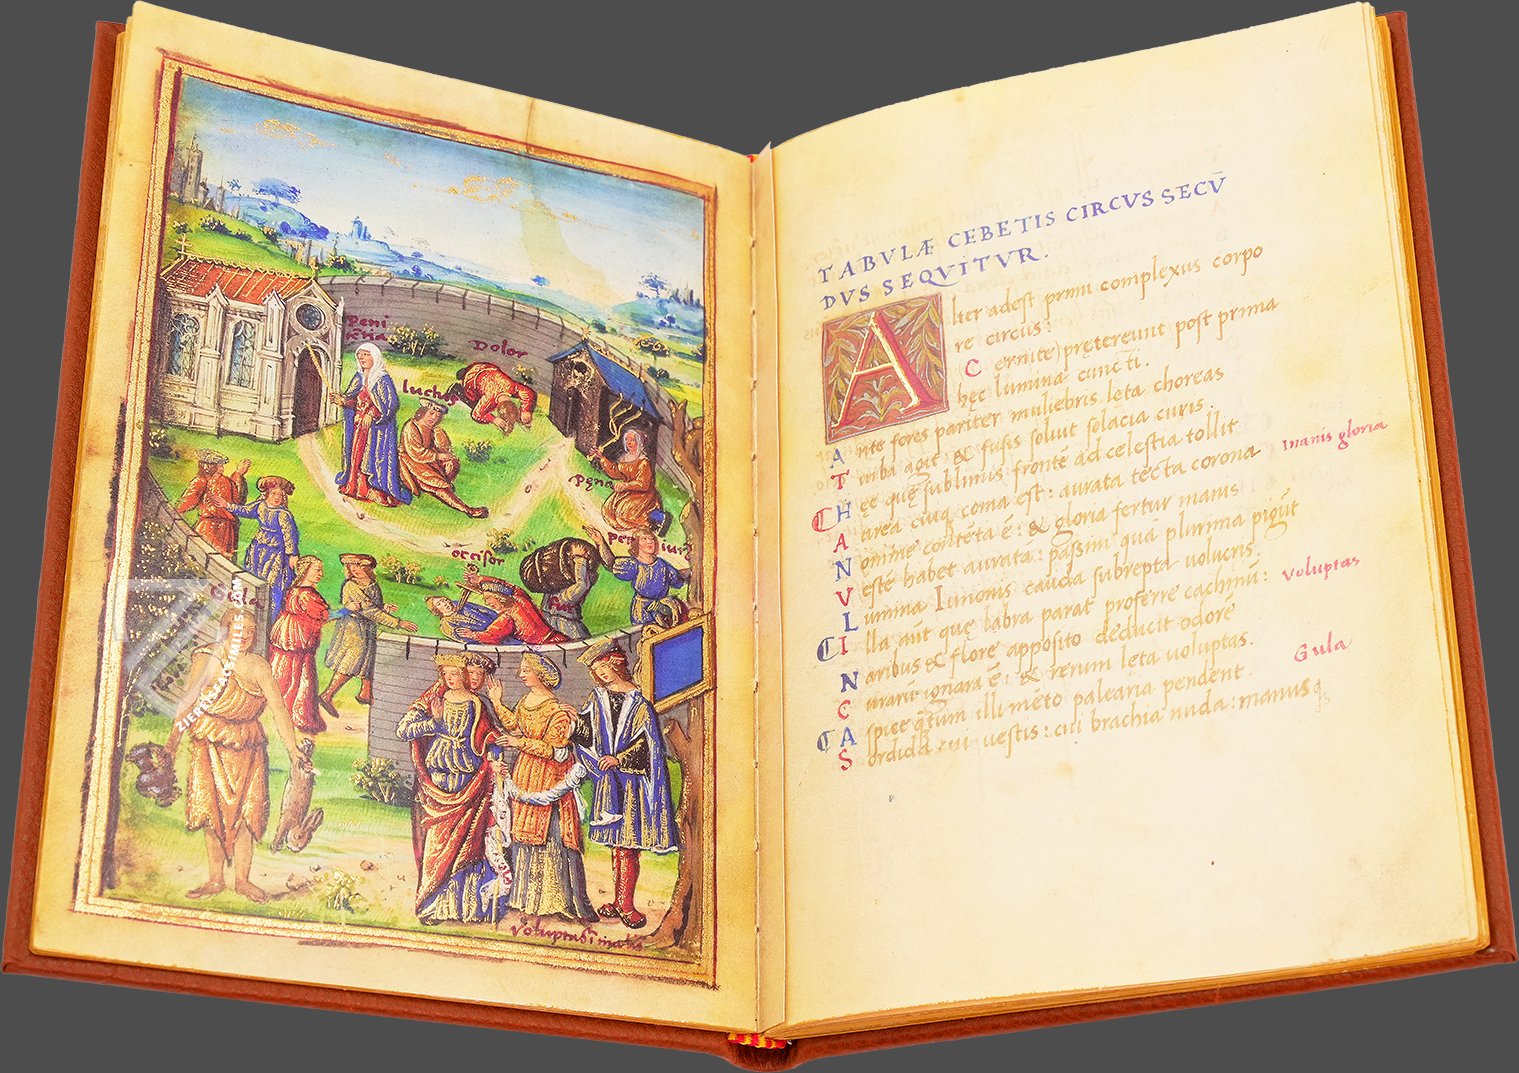 peni
tẽtia
Dolor
luctus
pęna
occisor
per iur
fur
Gula
ZIEREIS FACSIMILES
voluptas
TABVLÆ CEBETIS CIRCVS SECV̄
DVS SEQVITVR.
Alter adest primi complexus corpo
re circus:
Cernite) pretereunt post prima
hęc lumina cunct̄i.
Ante fores pariter muliebris leta choreas
Turba agit: & fusis soluit solacia curis.
Hęc quę sublimis frontē ad celestia tollit
A
tecta corona
N
conteta ē: & gloria fertur manis
Inanis gloria
Vestę habet aurata: passim qua plurima pigūt
Lumina Iunonis cauda subrepta volucris.
Illa aut quę labra parat proferre cachinū:
Voluptas
Naribus & flore apposito deducit odorē
C
ignara ē: & rerum leta uoluptas.
Aspice q̄tum illi mēto palearia pendent.
Gula
Sordida cui uestis: cui brachia nuda: manusq